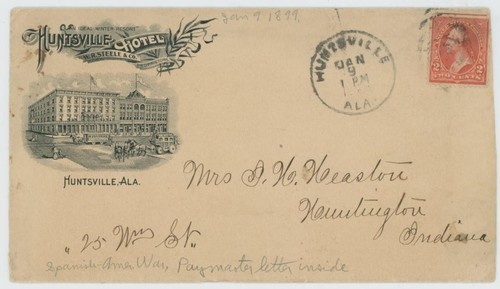 Jan 9 1899
"IDEAL WINTER RESORT"
HUNTSVILLE HOTEL
W.R. STEELE & CO.
HUNTSVILLE, ALA.
HUNTSVILLE
JAN
9
1 PM
ALA.
2 TWO CENTS 2
Mrs A. H. Heaston
Huntington
Indiana
"25 Wm St"
Spanish-Amer War, Paymaster letter inside